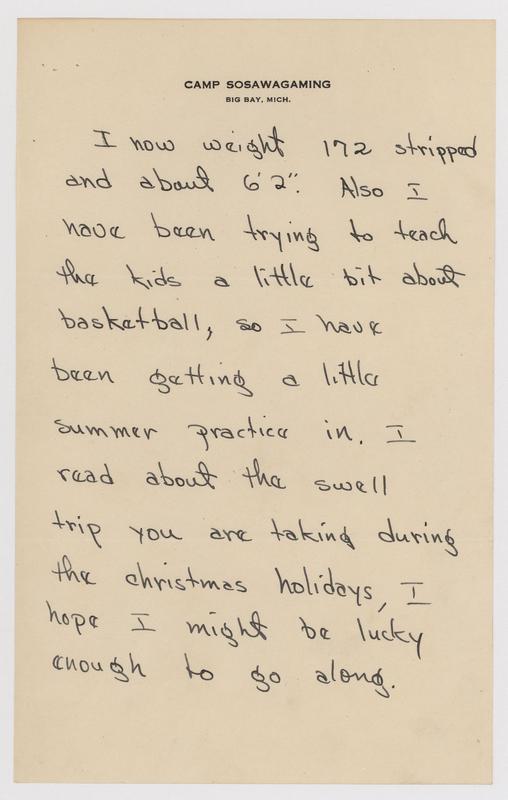 CAMP SOSAWAGAMING
BIG BAY, MICH.
I now weight 172 stripped
and about 6'2". Also I
have been trying to teach
the kids a little bit about
basketball, so I have
been getting a little
summer practice in. I
read about the swell
trip you are taking during
the christmas holidays, I
hope I might be lucky
enough to go along.